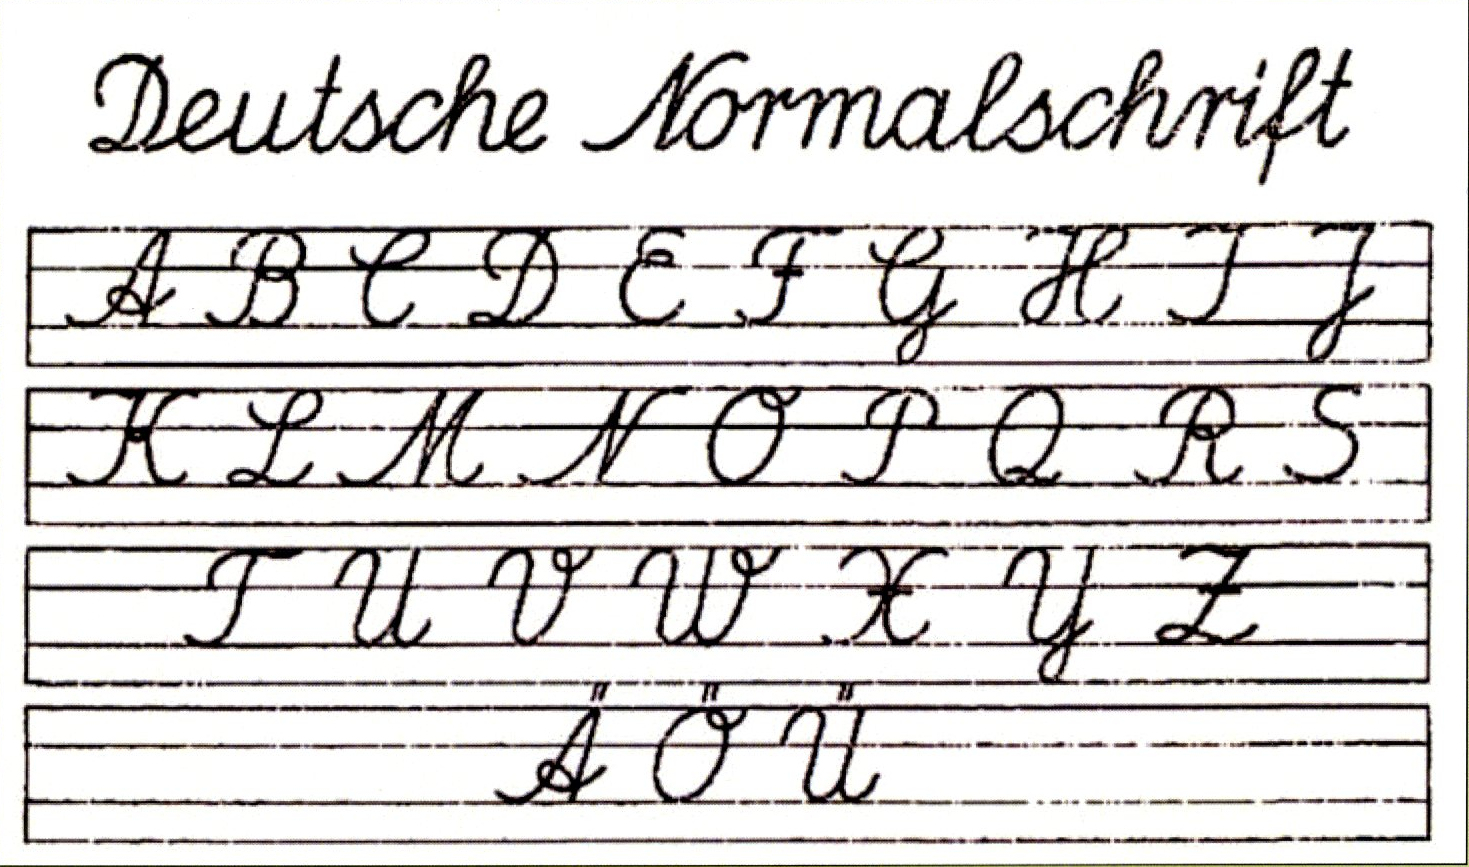 Deutsche Normalschrift
A B C D E F G H I J
K L M N O P Q R S
T U V W X Y Z
Ä Ö Ü